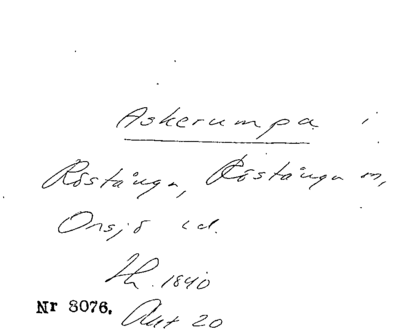 Askerumpa i
Röstånga, Röstånga sn,
Onsjö hd.
1840
Nr 3076. Akt 20